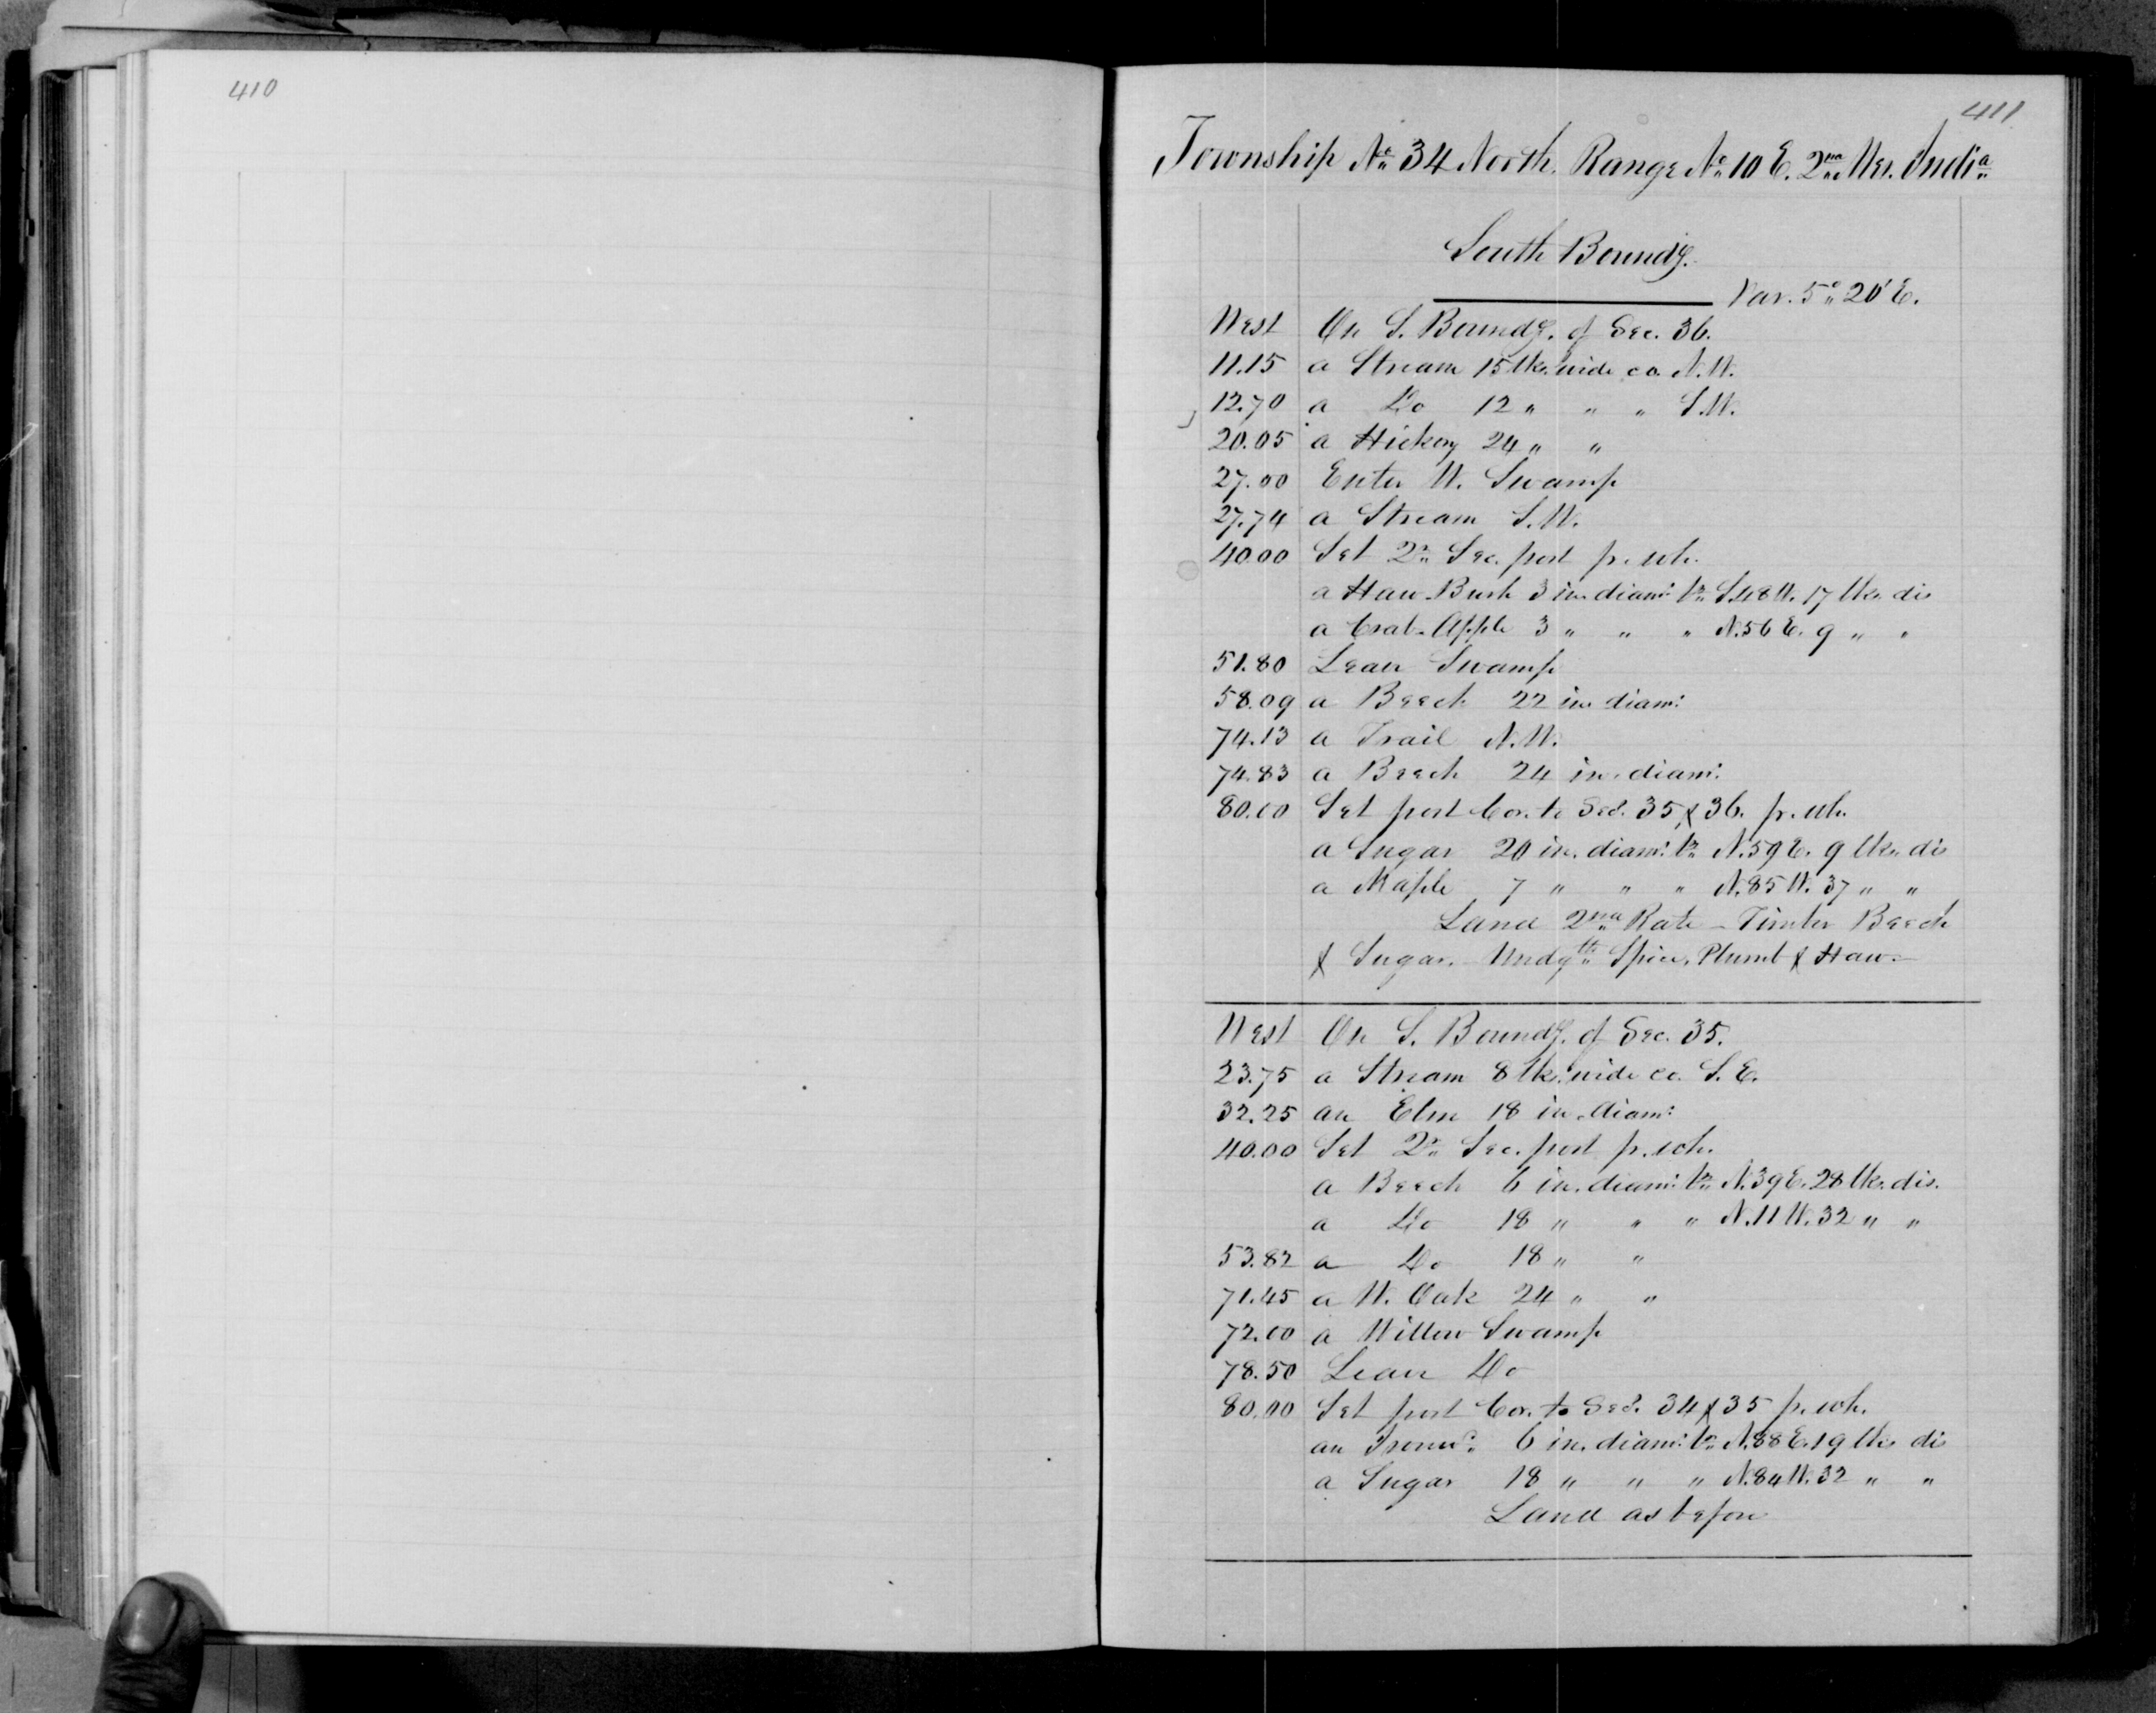 410
411
Township No 34 North. Range No 10 E. 2nd Mer. India
South Boundy.
Var. 5° 20' E.
West On S. Boundy. of Sec. 36.
11.15 a Stream 15 lks. wide co. N.W.
12.70 a Do 12 " " " S.W.
20.05 a Hickory 24 " "
27.00 Enter W. Swamp
27.74 a Stream S.W.
40.00 Set Qr Sec. post fr. wh.
a Haw Bush 3 in. diamr br S.48 W. 17 lks. dis
a Crab-Apple 3 " " " N.56 E. 9 " "
51.80 Leave Swamp
58.09 a Beech 22 in. diamr
74.13 a Trail N.W.
74.83 a Beech 24 in. diamr
80.00 Set post Cor. to Secs. 35 & 36. fr. wh.
a Sugar 20 in. diamr br N.59 E. 9 lks. dis
a Maple 7 " " " N.85 W. 37 " "
Land 2nd Rate - Timber Beech
& Sugar. Undgth Spice, Plumb & Haw
West On S. Boundy. of Sec. 35.
23.75 a Stream 8 lks. wide co. S.E.
32.25 an Elm 18 in. diamr
40.00 Set Qr Sec. post fr. wh.
a Beech 6 in. diamr br N.39 E. 28 lks. dis.
a Do 18 " " " N.11 W. 32 " "
53.82 a Do 18 " "
71.45 a W. Oak 24 " "
72.00 a Willow Swamp
78.50 Leave Do
80.00 Set post Cor. to Secs. 34 & 35 fr. wh.
an Ironwd 6 in. diamr br N.88 E. 19 lks dis
a Sugar 18 " " " N.84 W. 32 " "
Land as before